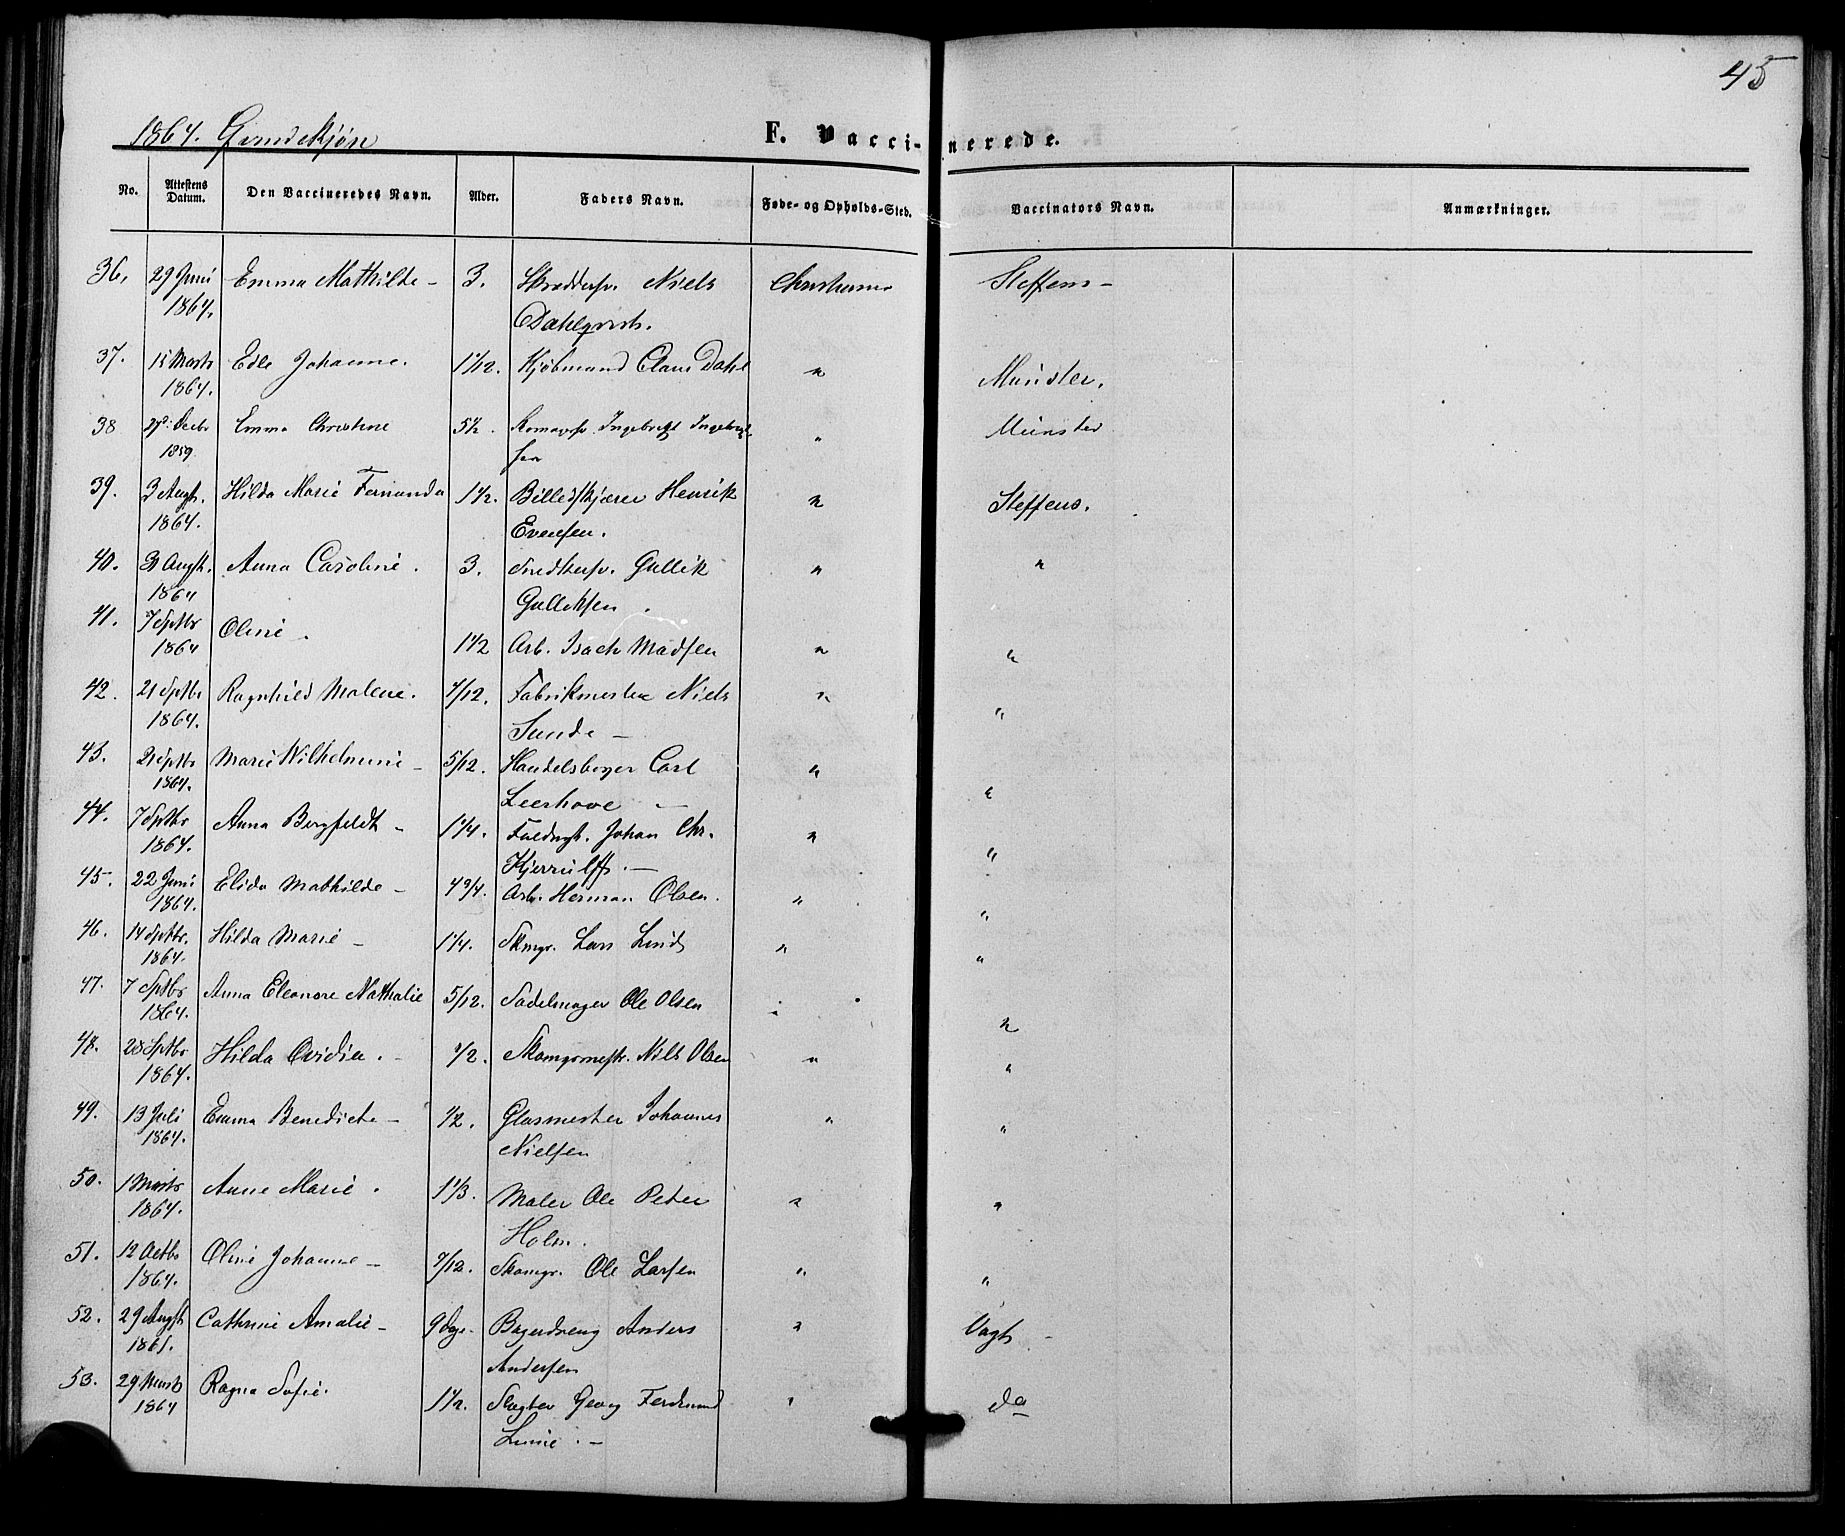 45
1864. Qvindekjøn
F. Vaccinerede.
No. Attestens Datum. Den Vaccineredes Navn. Alder. Faders Navn. Føde- og Opholds-Sted. Vaccinators Navn. Anmærkninger.
36. 29 Juni Emma Mathilde - 3. Niels Christiania Steffens -
1864. Dahlqvist.
37. Marts Edle Johanne. 1 1/12. Kjøbmand Claus Dahl " Münster.
1864.
38 Decbr Emma Christine 5 1/2. Ingebrigt " Münster
1859 sen
39. 3 Augst. Hilda Marie Fernanda 1 1/2. Billedskjærer Henrik " Steffens.
1864. Evensen.
40. 31 Augst. Anna Caroline. 3. Snedkersv. Gullik " "
1864 Gulliksen.
41. 7 Sptbr Oline. 1 1/2 Arb. Isach Madsen " "
1864
42. 21 Sptbr Ragnhild Malene. 7/12. Fabrikmester Niels " "
1864. Sunde -
43. 21 Sptbr Marie Wilhelmine - 5/12. Carl " "
1864.
44. 7 Sptbr Anna Bergfeldt - 1 1/4. Fuldmgt. Johan Chr. " "
1864. Kjerrulff. -
45. 22 Juni Elida Mathilde - 4 3/4. Arb. Herman Olsen. " "
1864.
46. 14 Sptbr. Hilda Marie - 1 1/4. Skmgr. Lars Lind " "
1864.
47. 7 Sptbr Anna Eleonore Nathalie 5/12. Sadelmager Ole Olsen " "
1864.
48. 28 Sptbr Hilda Ovidia. - 1/2. Skomgrmestr. Nils Olsen " "
1864.
49. 13 Juli Emma Benedicte - 1/2. Glasmester Johannes " "
1864. Nielsen
50. 1 Marts Anne Marie. 1 1/3. Maler Ole Peter " "
1864. Holm.
51. 12 Octbr Oline Johanne - 7/12. Skomgr. Ole Larsen " "
1864.
52. 29 Augst Cathrine Amalie - 9 Anders " Vogt -
1861. Andersen
53. 29 Marts Ragna Sofie. 1 1/2. Slagter Georg Ferdinand " do
1864